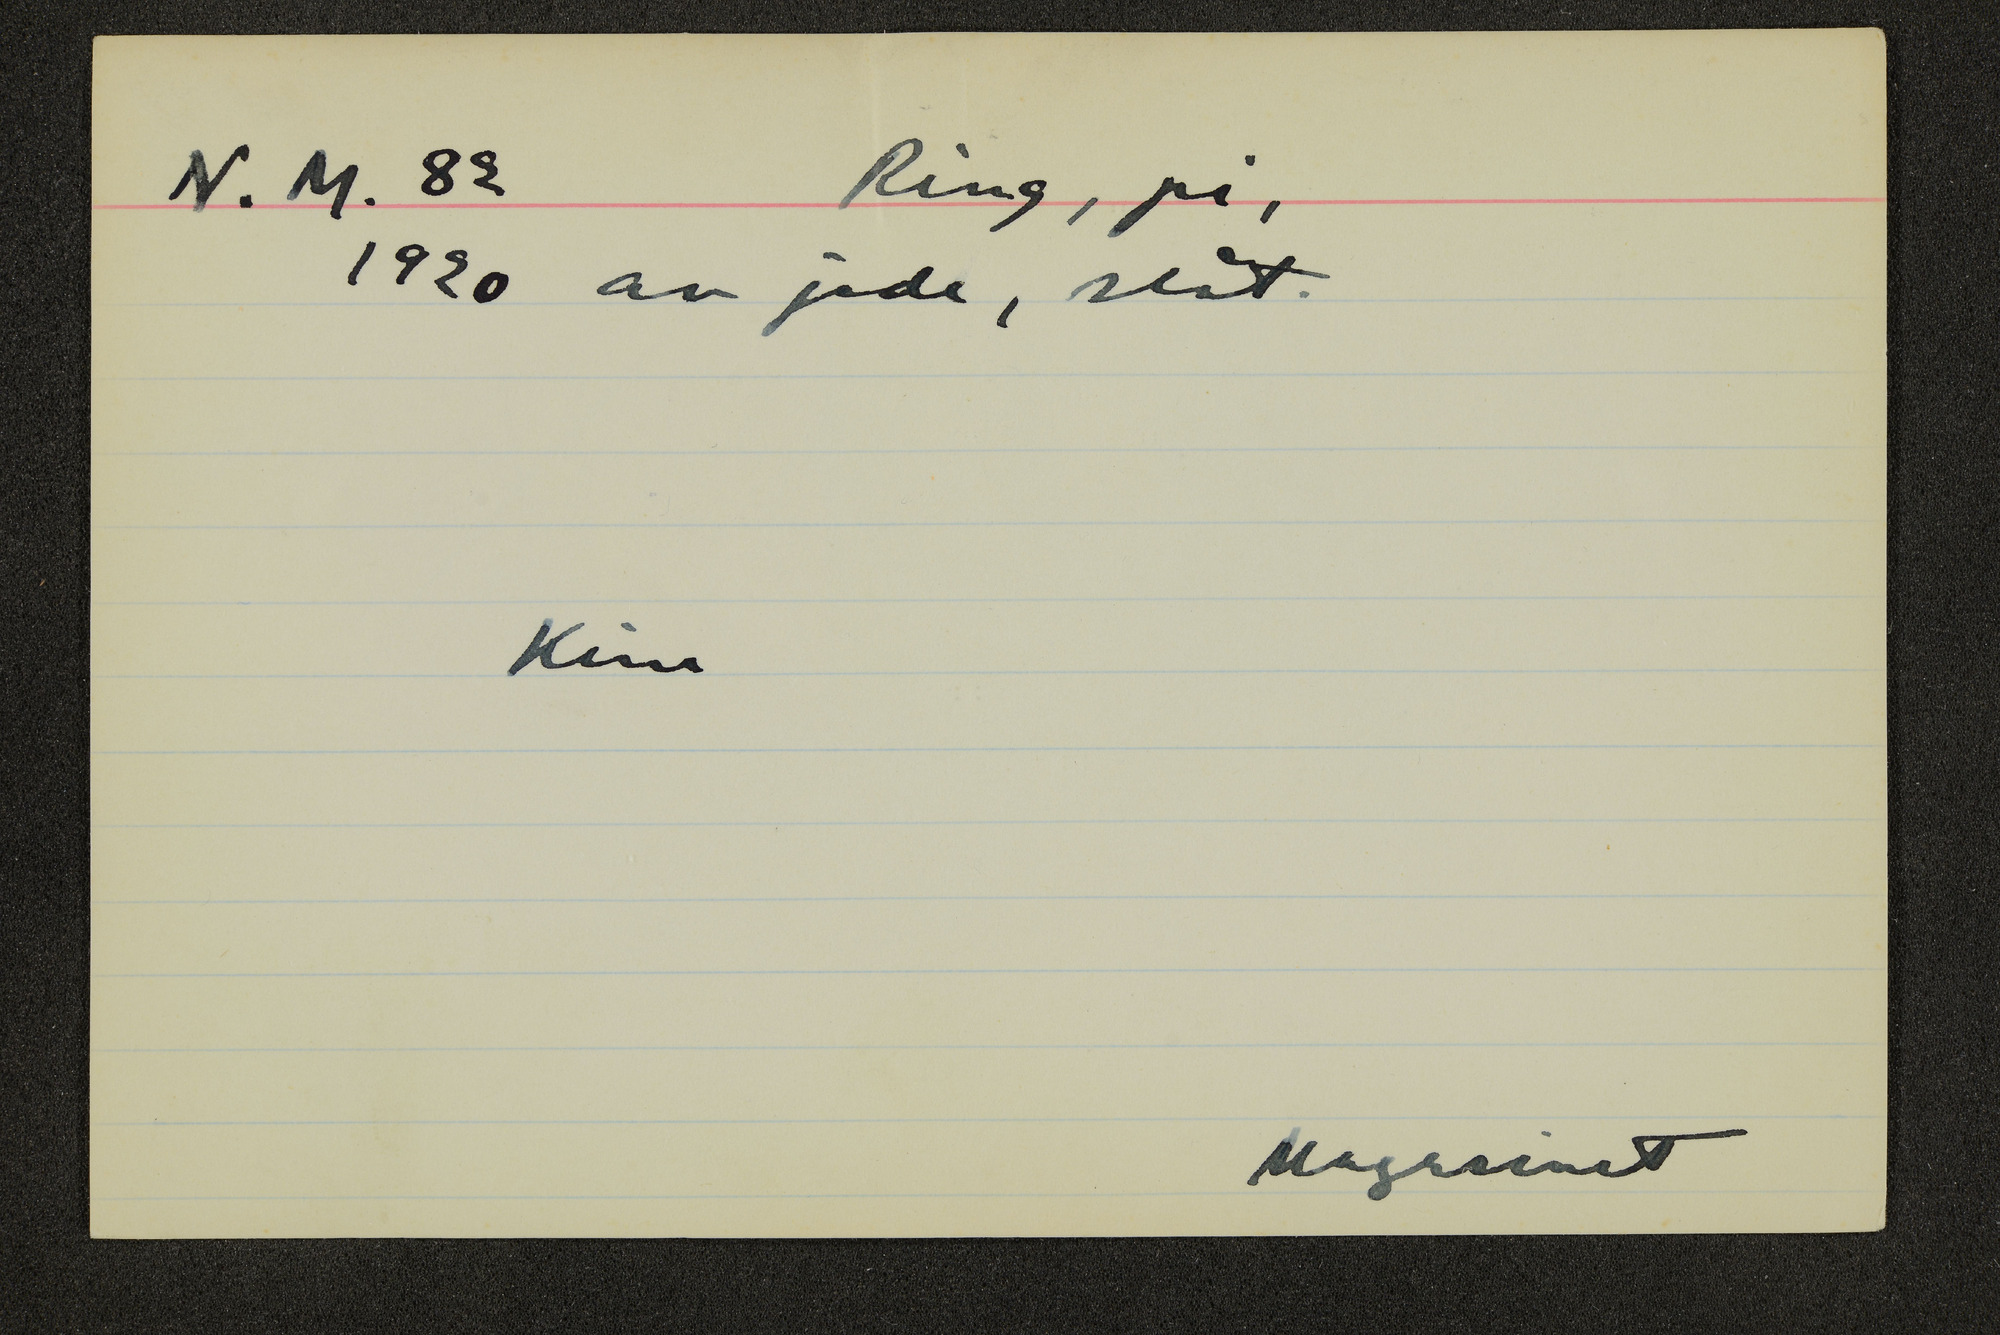 N. M. 82 Ring, pi,
1920 av jade, slät.
Kina
Magasinet